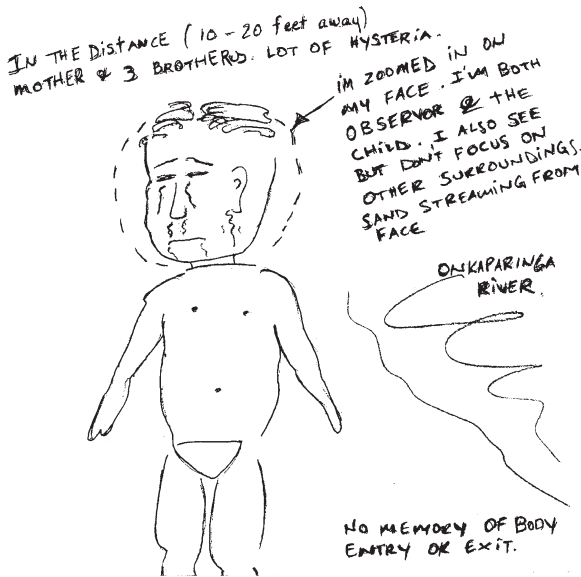 IN THE DISTANCE (10 - 20 feet away)
MOTHER & 3 BROTHERS. LOT OF HYSTERIA.
IM ZOOMED IN ON
MY FACE. I'M BOTH
OBSERVOR & THE
CHILD. I ALSO SEE
BUT DON'T FOCUS ON
OTHER SURROUNDINGS.
SAND STREAMING FROM
FACE
ONKAPARINGA
RIVER.
NO MEMORY OF BODY
ENTRY OR EXIT.